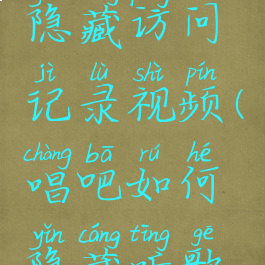 隐藏访问
jì lù shì pín
记录视频(
chàng bā rú hé
唱吧如何
yǐn cáng tīng gē
隐藏听歌